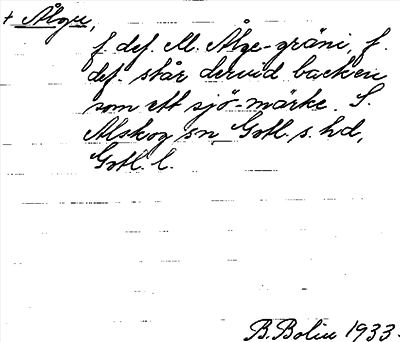 + Ålgre,
f. def. M. Ålge-gräni, f.
def. står dervid backen
som ett sjö-märke. S.
Alskog sn, Gotl. s. hd,
Gotl. l.
B. Bolin 1933.